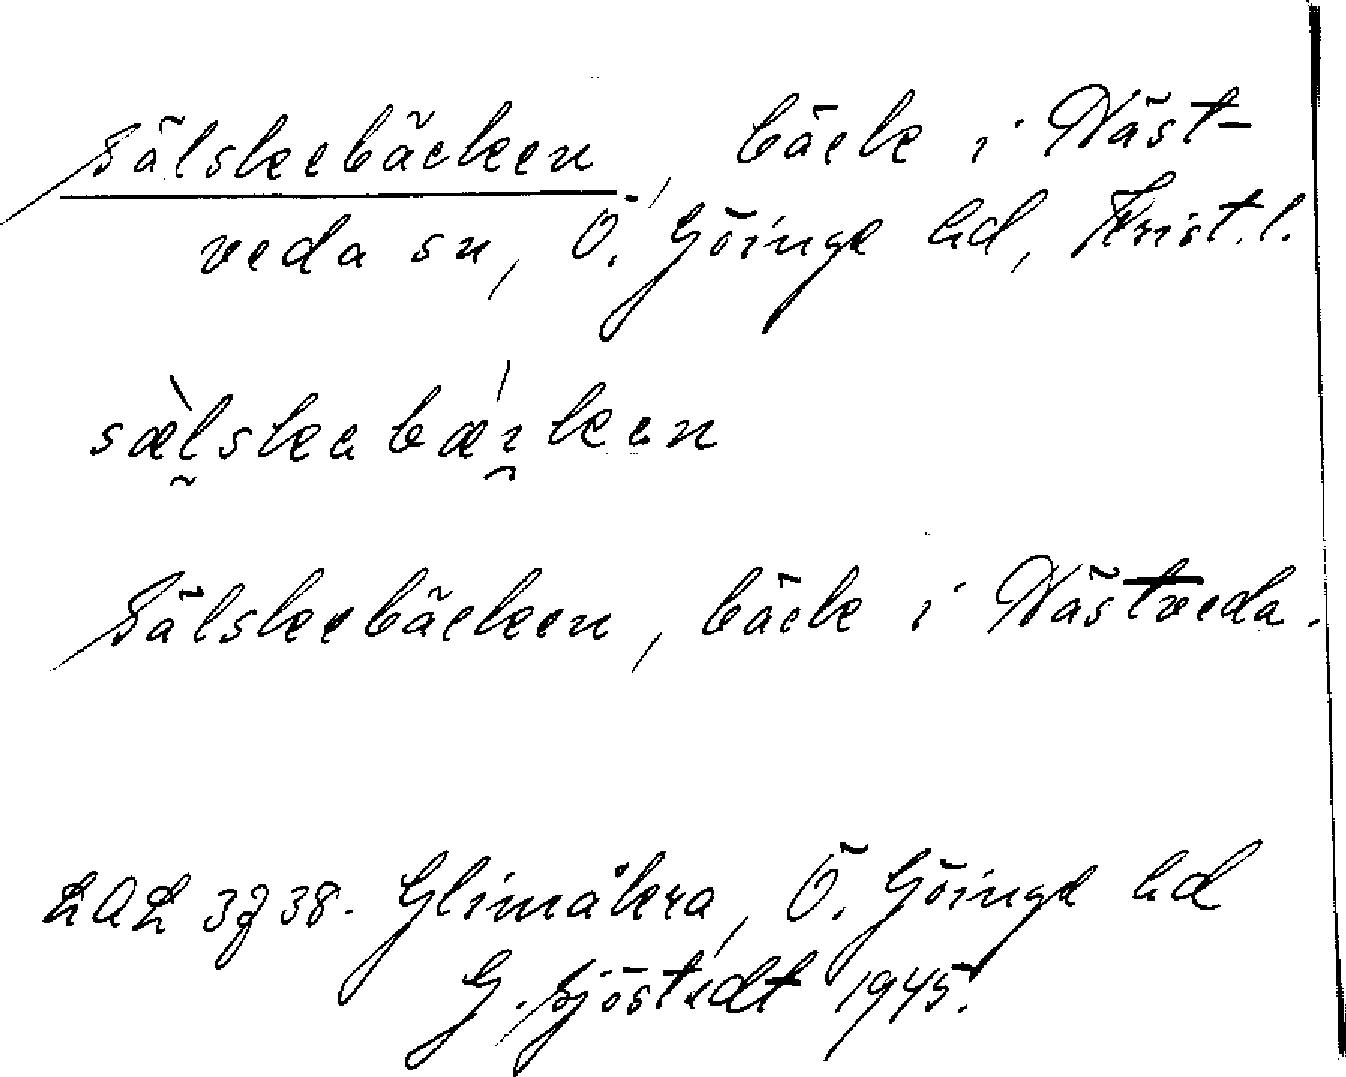 Sälskebäcken, bäck i Näst-
veda sn, Ö. Göinge hd, Krist.l.
Sälskebäcken, bäck i Nästveda.
LAL 3738. Glimåkra, Ö. Göinge hd
G. Sjöstedt 1945.